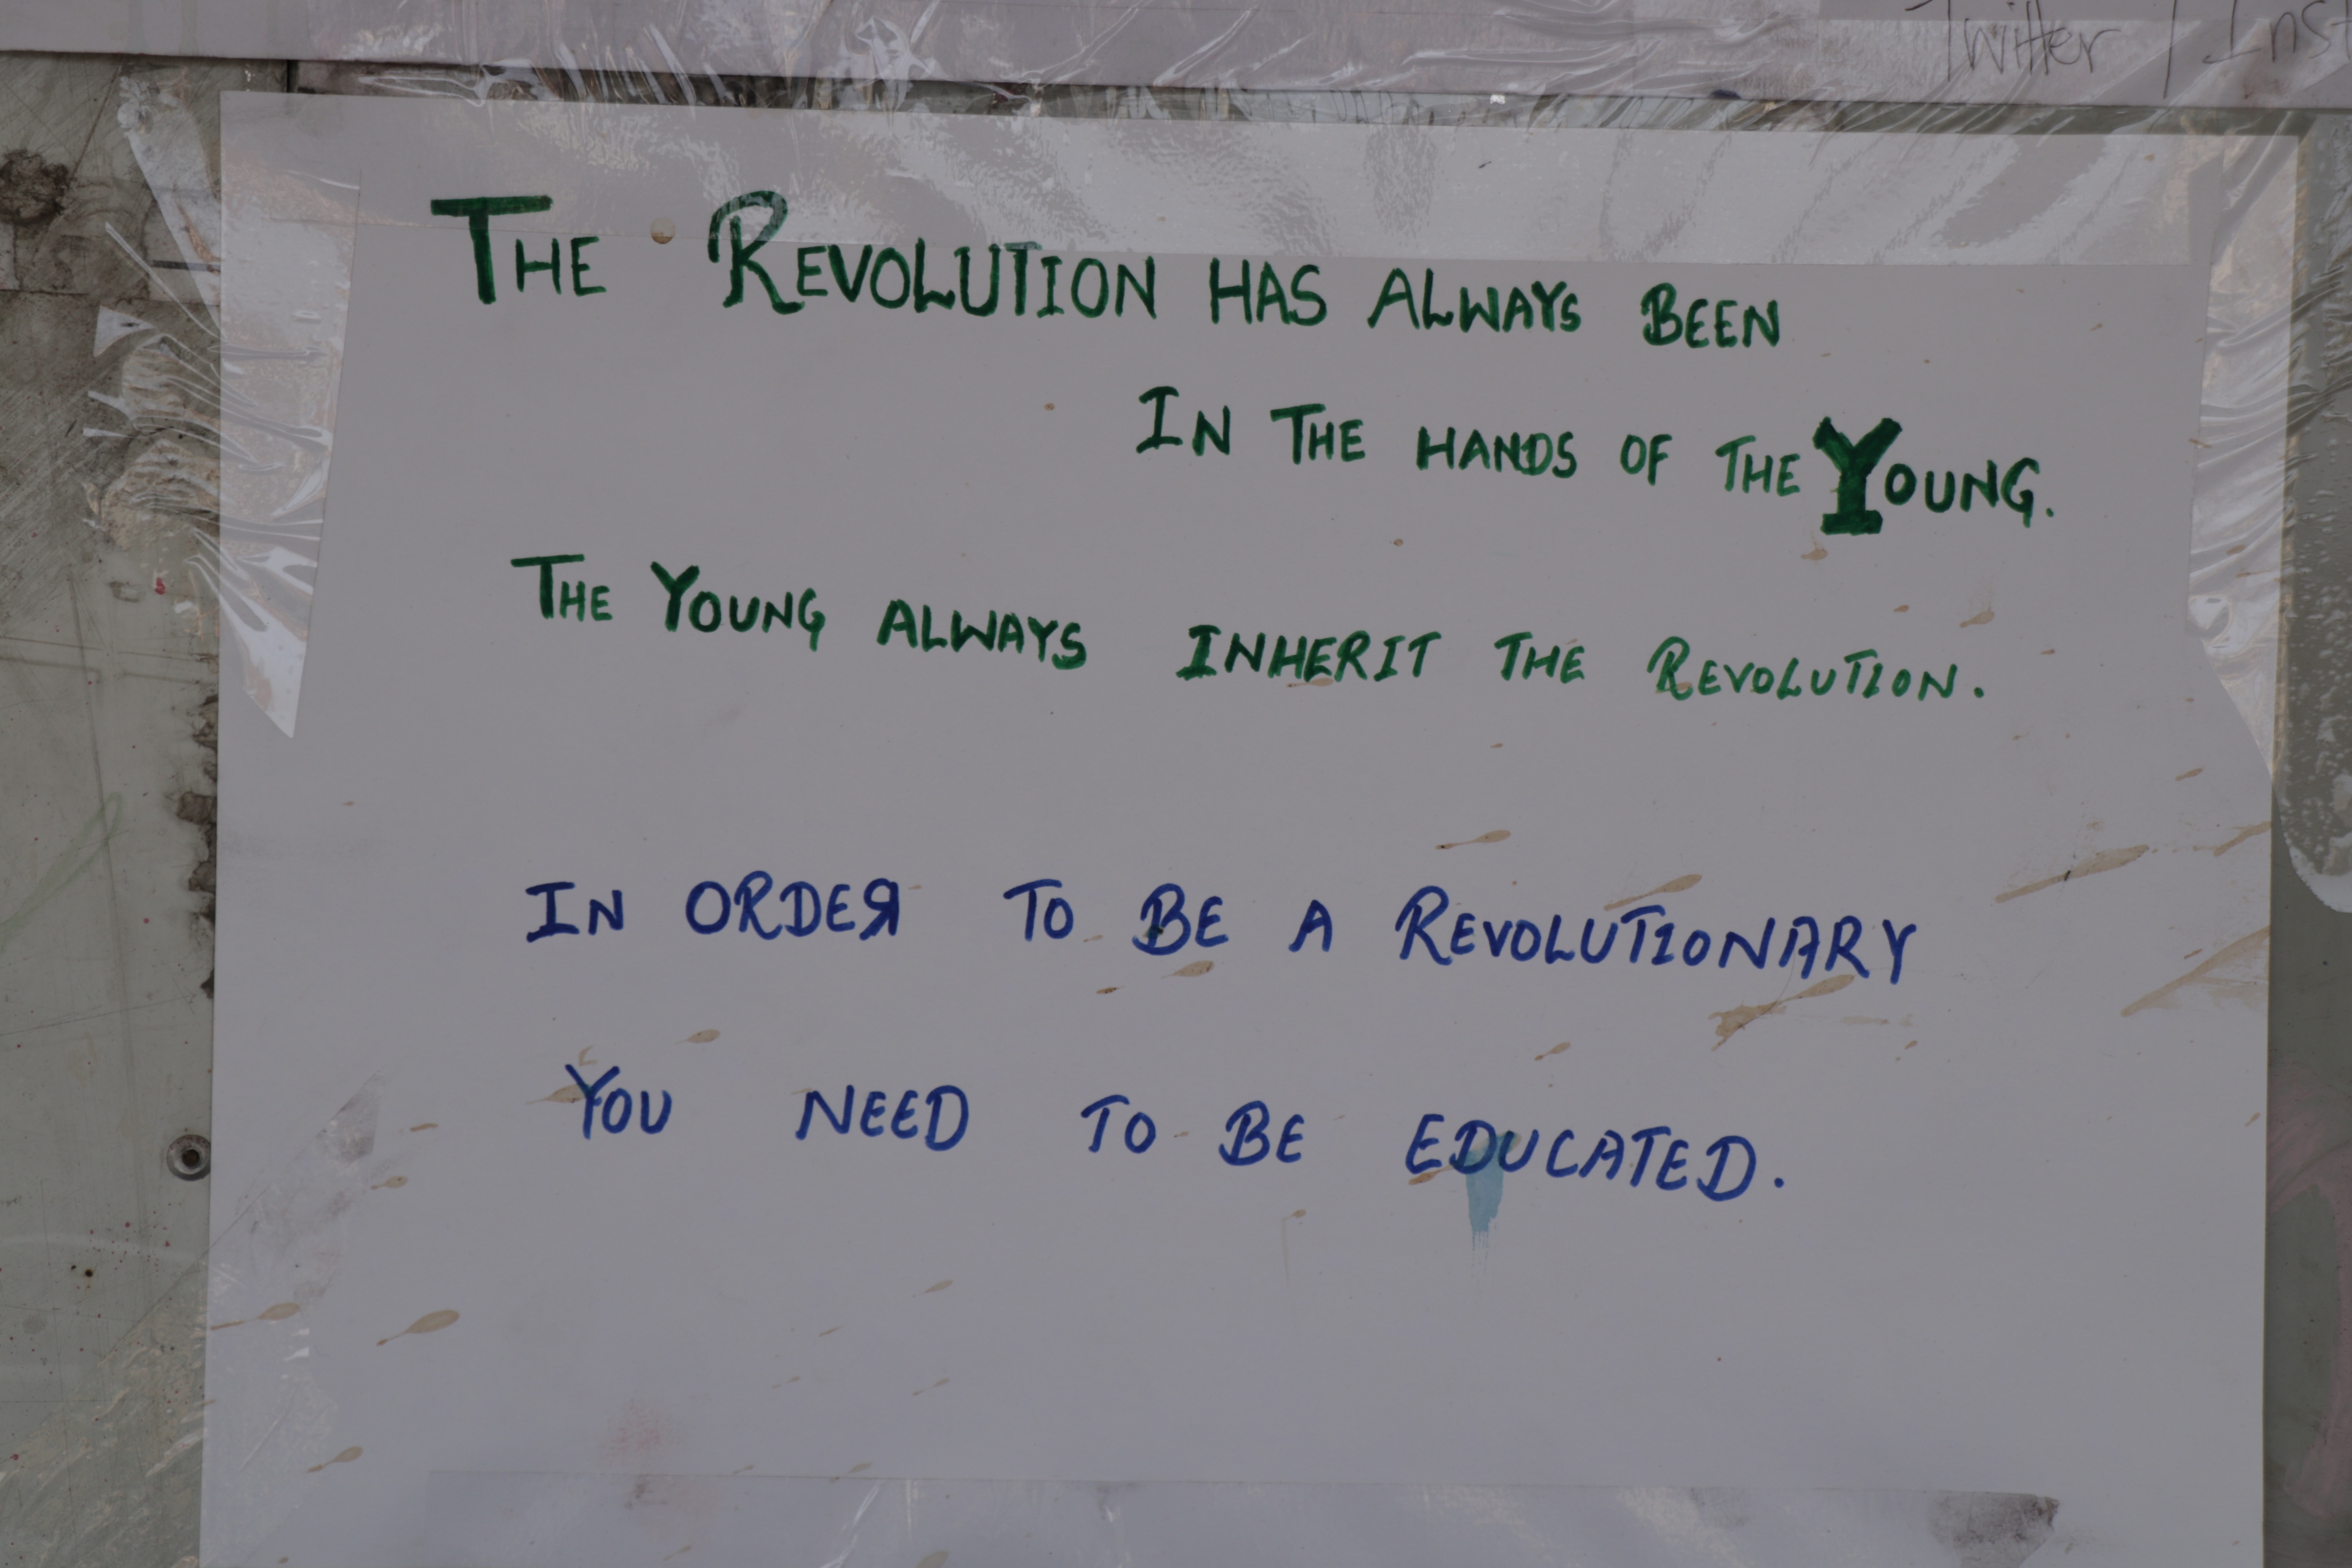 Twitter / Inst
THE REVOLUTION HAS ALWAYS BEEN
IN THE HANDS OF THE YOUNG.
THE YOUNG ALWAYS INHERIT THE REVOLUTION.
IN ORDEЯ TO BE A REVOLUTIONARY
YOU NEED TO BE EDUCATED.